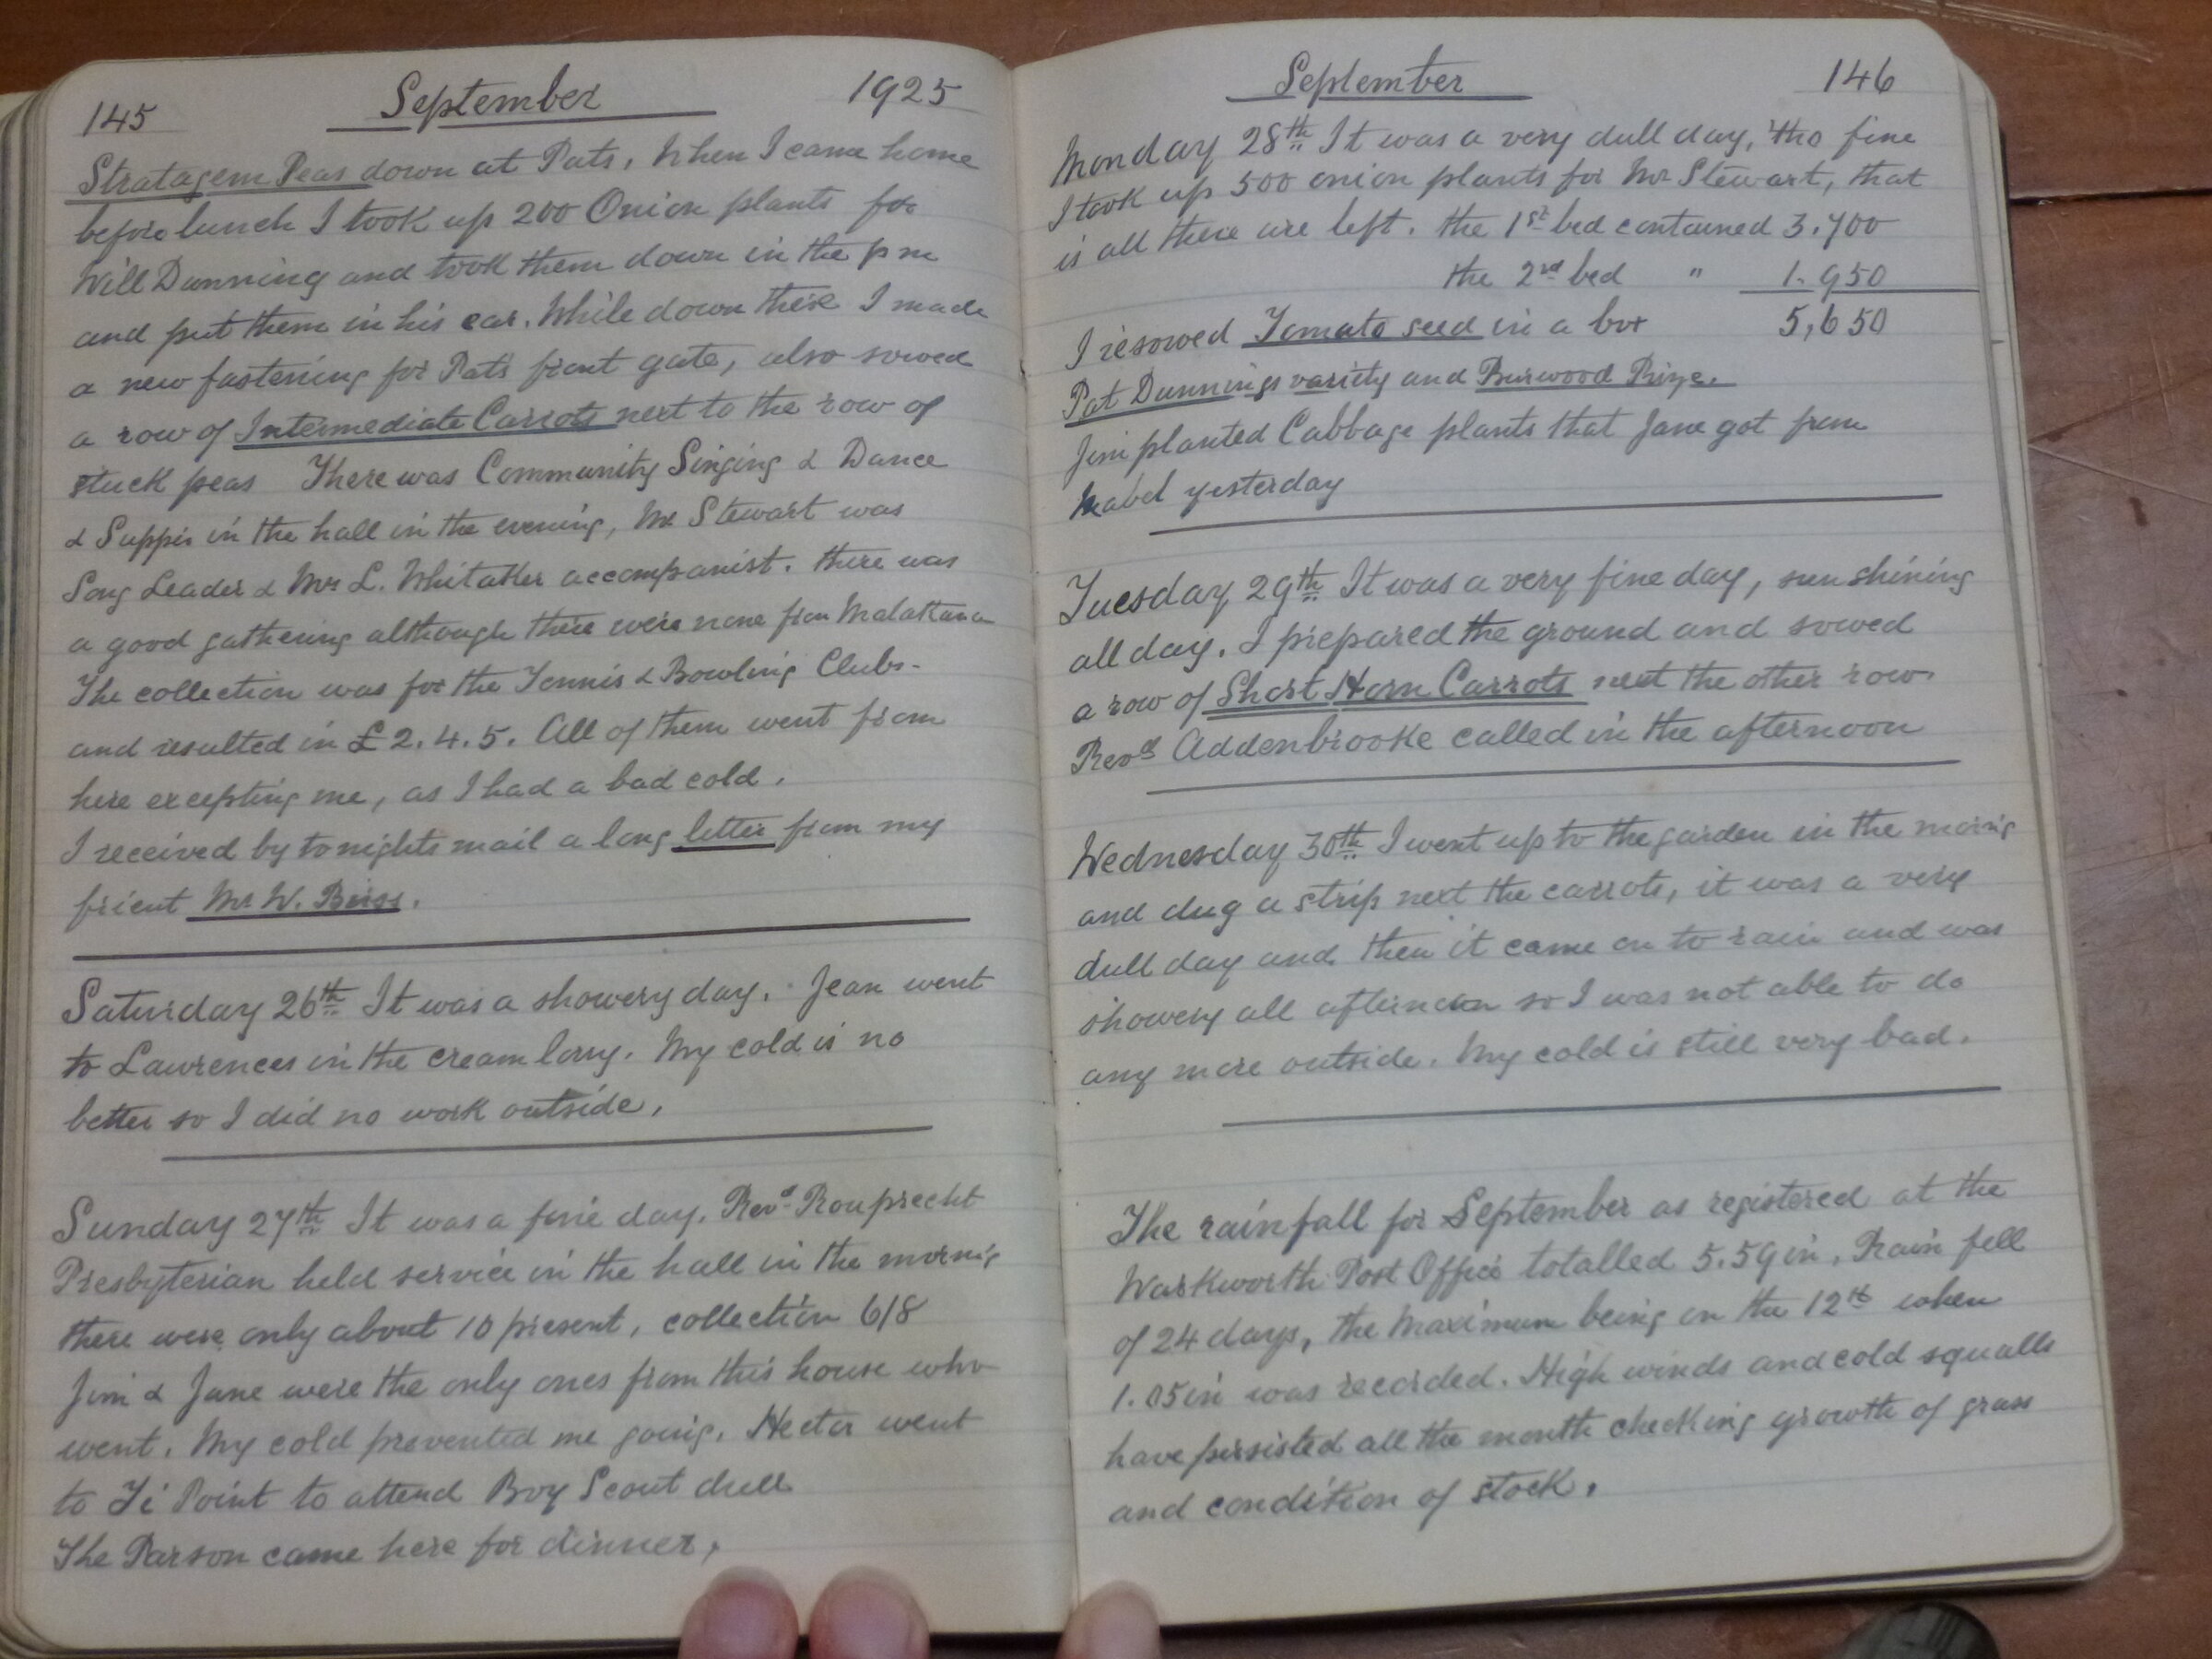 145 September 1925
Stratagem Peas down at Pats. When I came home
before lunch I took up 200 Onion plants for
Will Dunning and took them down in the p m
and put them in his car. While down there I made
a new fastening for Pats front gate, also sowed
a row of Intermediate Carrots next to the row of
stuck peas There was Community Singing & Dance
& Supper in the hall in the evening, Mr Stewart was
Song Leader & Mrs L. Whitaker accompanist. there was
a good gathering although there were none from Matakana
The collection was for the Tennis & Bowling Clubs-
and resulted in £2.4.5. All of them went from
here excepting me, as I had a bad cold.
I received by tonights mail a long letter from my
frient Mr W.
Saturday 26th It was a showery day. Jean went
to Lawrences in the cream lorry. My cold is no
better so I did no work outside.
Sunday 27th It was a fine day. Revd Rouprecht
Presbyterian held service in the hall in the mornig
there were only about 10 present, collection 6/8
Jim & Jane were the only ones from this house who
went. My cold prevented me going. Hector went
to Ti Point to attend Boy Scout drill
The Parson came here for dinner.
September 146
Monday 28th It was a very dull day, tho fine
I took up 500 onion plants for Mr Stewart, that
is all there are left. the 1st bed contained 3.700
the 2nd bed " 1.950
I resowed Tomato seed in a box 5,650
Pat Dunnings variety and Burwood Prize.
Jim planted Cabbage plants that Jane got from
Mabel yesterday
Tuesday 29th It was a very fine day, sun shining
all day. I prepared the ground and sowed
a row of Short Horn Carrots next the other row.
Revd Addenbrooke called in the afternoon
Wednesday 30th I went up to the garden in the mornig
and dug a strip next the carrots, it was a very
dull day and then it came on to rain and was
showery all afternoon so I was not able to do
any more outside. My cold is still very bad.
The rainfall for September as registered at the
Warkworth Post Office totalled 5.59 in. Rain fell
of 24 days, the Maximum being on the 12th when
1.05in was recorded. High winds and cold squalls
have persisted all the month checking growth of grass
and condition of stock.